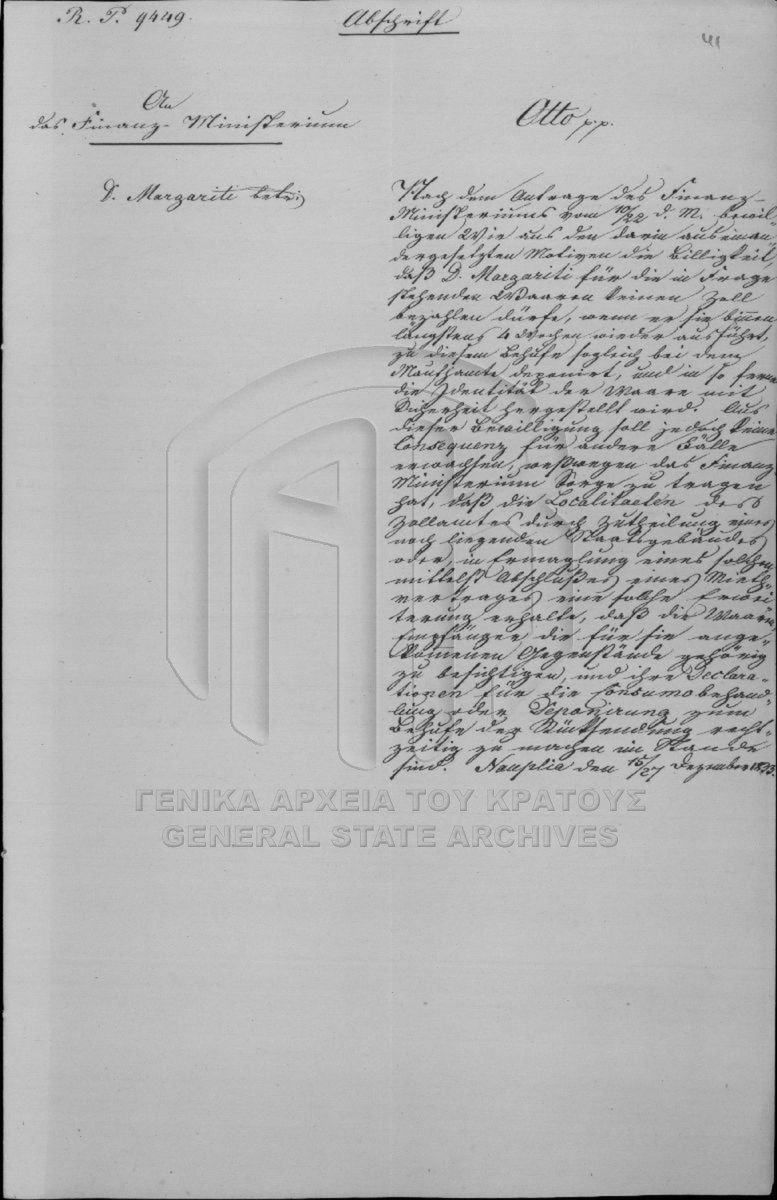 R. P. 9449.
Abschrift
41
An
das Finanz-Ministerium
D. Margariti betr:
Otto p.p.
Nach dem Antrage des Finanz-
Ministeriums vom 10/22 d. M. bewil-
ligen Wir aus den darin auseinan-
dergesetzten Motiven die Billigkeit,
daß D. Margariti für die in Frage
stehenden Waaren keinen Zoll
bezahlen dürfe, wenn er sie binnen
längstens 4 Wochen wieder ausführt,
zu diesem Behufe sogleich bei dem
Mauthamte deponirt, und in so ferne
die Identität der Waare mit
Sicherheit hergestellt wird. Aus
dieser Bewilligung soll jedoch keine
Consequenz für andere Fälle
erwachsen, weßwegen das Finanz
Ministerium Sorge zu tragen
hat, daß die Localitaeten des
Zollamtes durch Zutheilung eines
noch liegenden Staatsgebäudes
oder, in Ermaglung eines solchen
mittelst Abschlußes eines Mieth-
vertrages eine solche Erwei-
terung erhalte, daß die Waaren
Empfänger die für sie ange-
kommenen Gegenstände gehörig
zu besichtigen, und ihre Declara-
tionen für die Consumobehand-
lung oder Deponirung zum
Behufe der Rücksendung recht-
zeitig zu machen im Stande
sind. Nauplia den 15/27 Dezember 1833.
ΓΕΝΙΚΑ ΑΡΧΕΙΑ ΤΟΥ ΚΡΑΤΟΥΣ
GENERAL STATE ARCHIVES